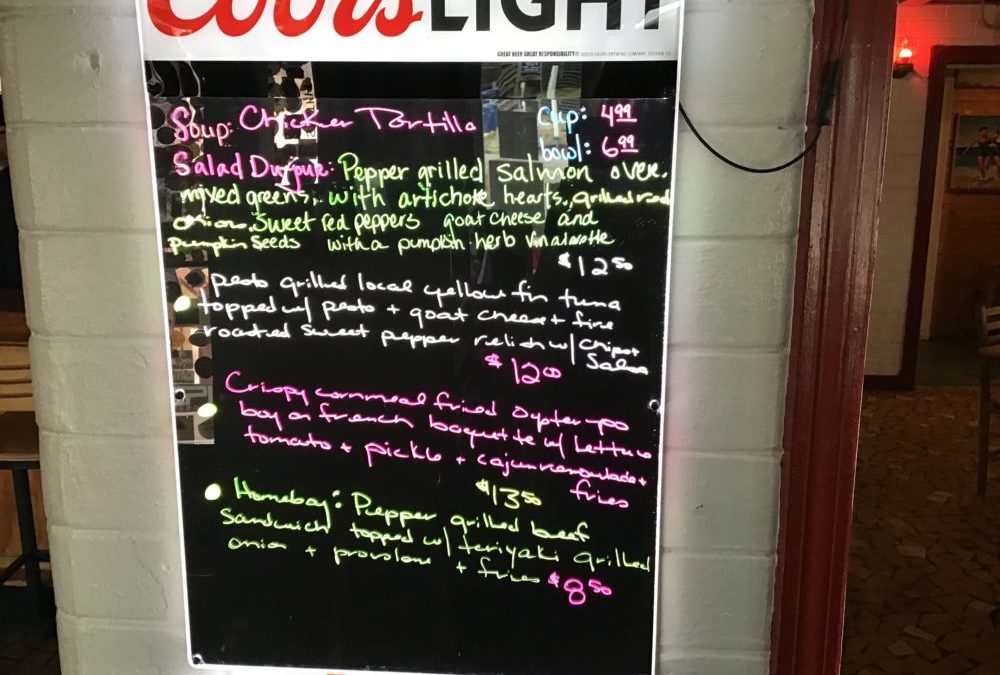 Coors LIGHT
GREAT BEER GREAT RESPONSIBILITY®
Soup: Chicken Tortilla cup: 4.99
bowl: 6.99
Salad Dujour: Pepper grilled Salmon over
mixed greens, with artichoke hearts, grilled red
onion, Sweet red peppers goat cheese and
pumpkin seeds with a pumpkin herb vinaigrette
$12.50
pesto grilled local yellow fin tuna
topped w/ pesto + goat cheese + fire
roasted sweet pepper relish w/ Chips +
Salsa
$12.00
Crispy cornmeal fried Oyster po
boy on french baquette w/ lettuce
tomato + pickle + cajun remoulade +
fries
$13.50
Homeboy: Pepper grilled beef
Sandwich topped w/ teriyaki grilled
onion + provolone + fries $8.50